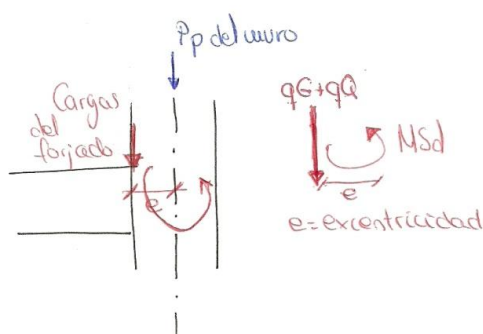 Pp del muro
Cargas
del
forjado
e
qG+qQ
MSd
e
e=excentricidad